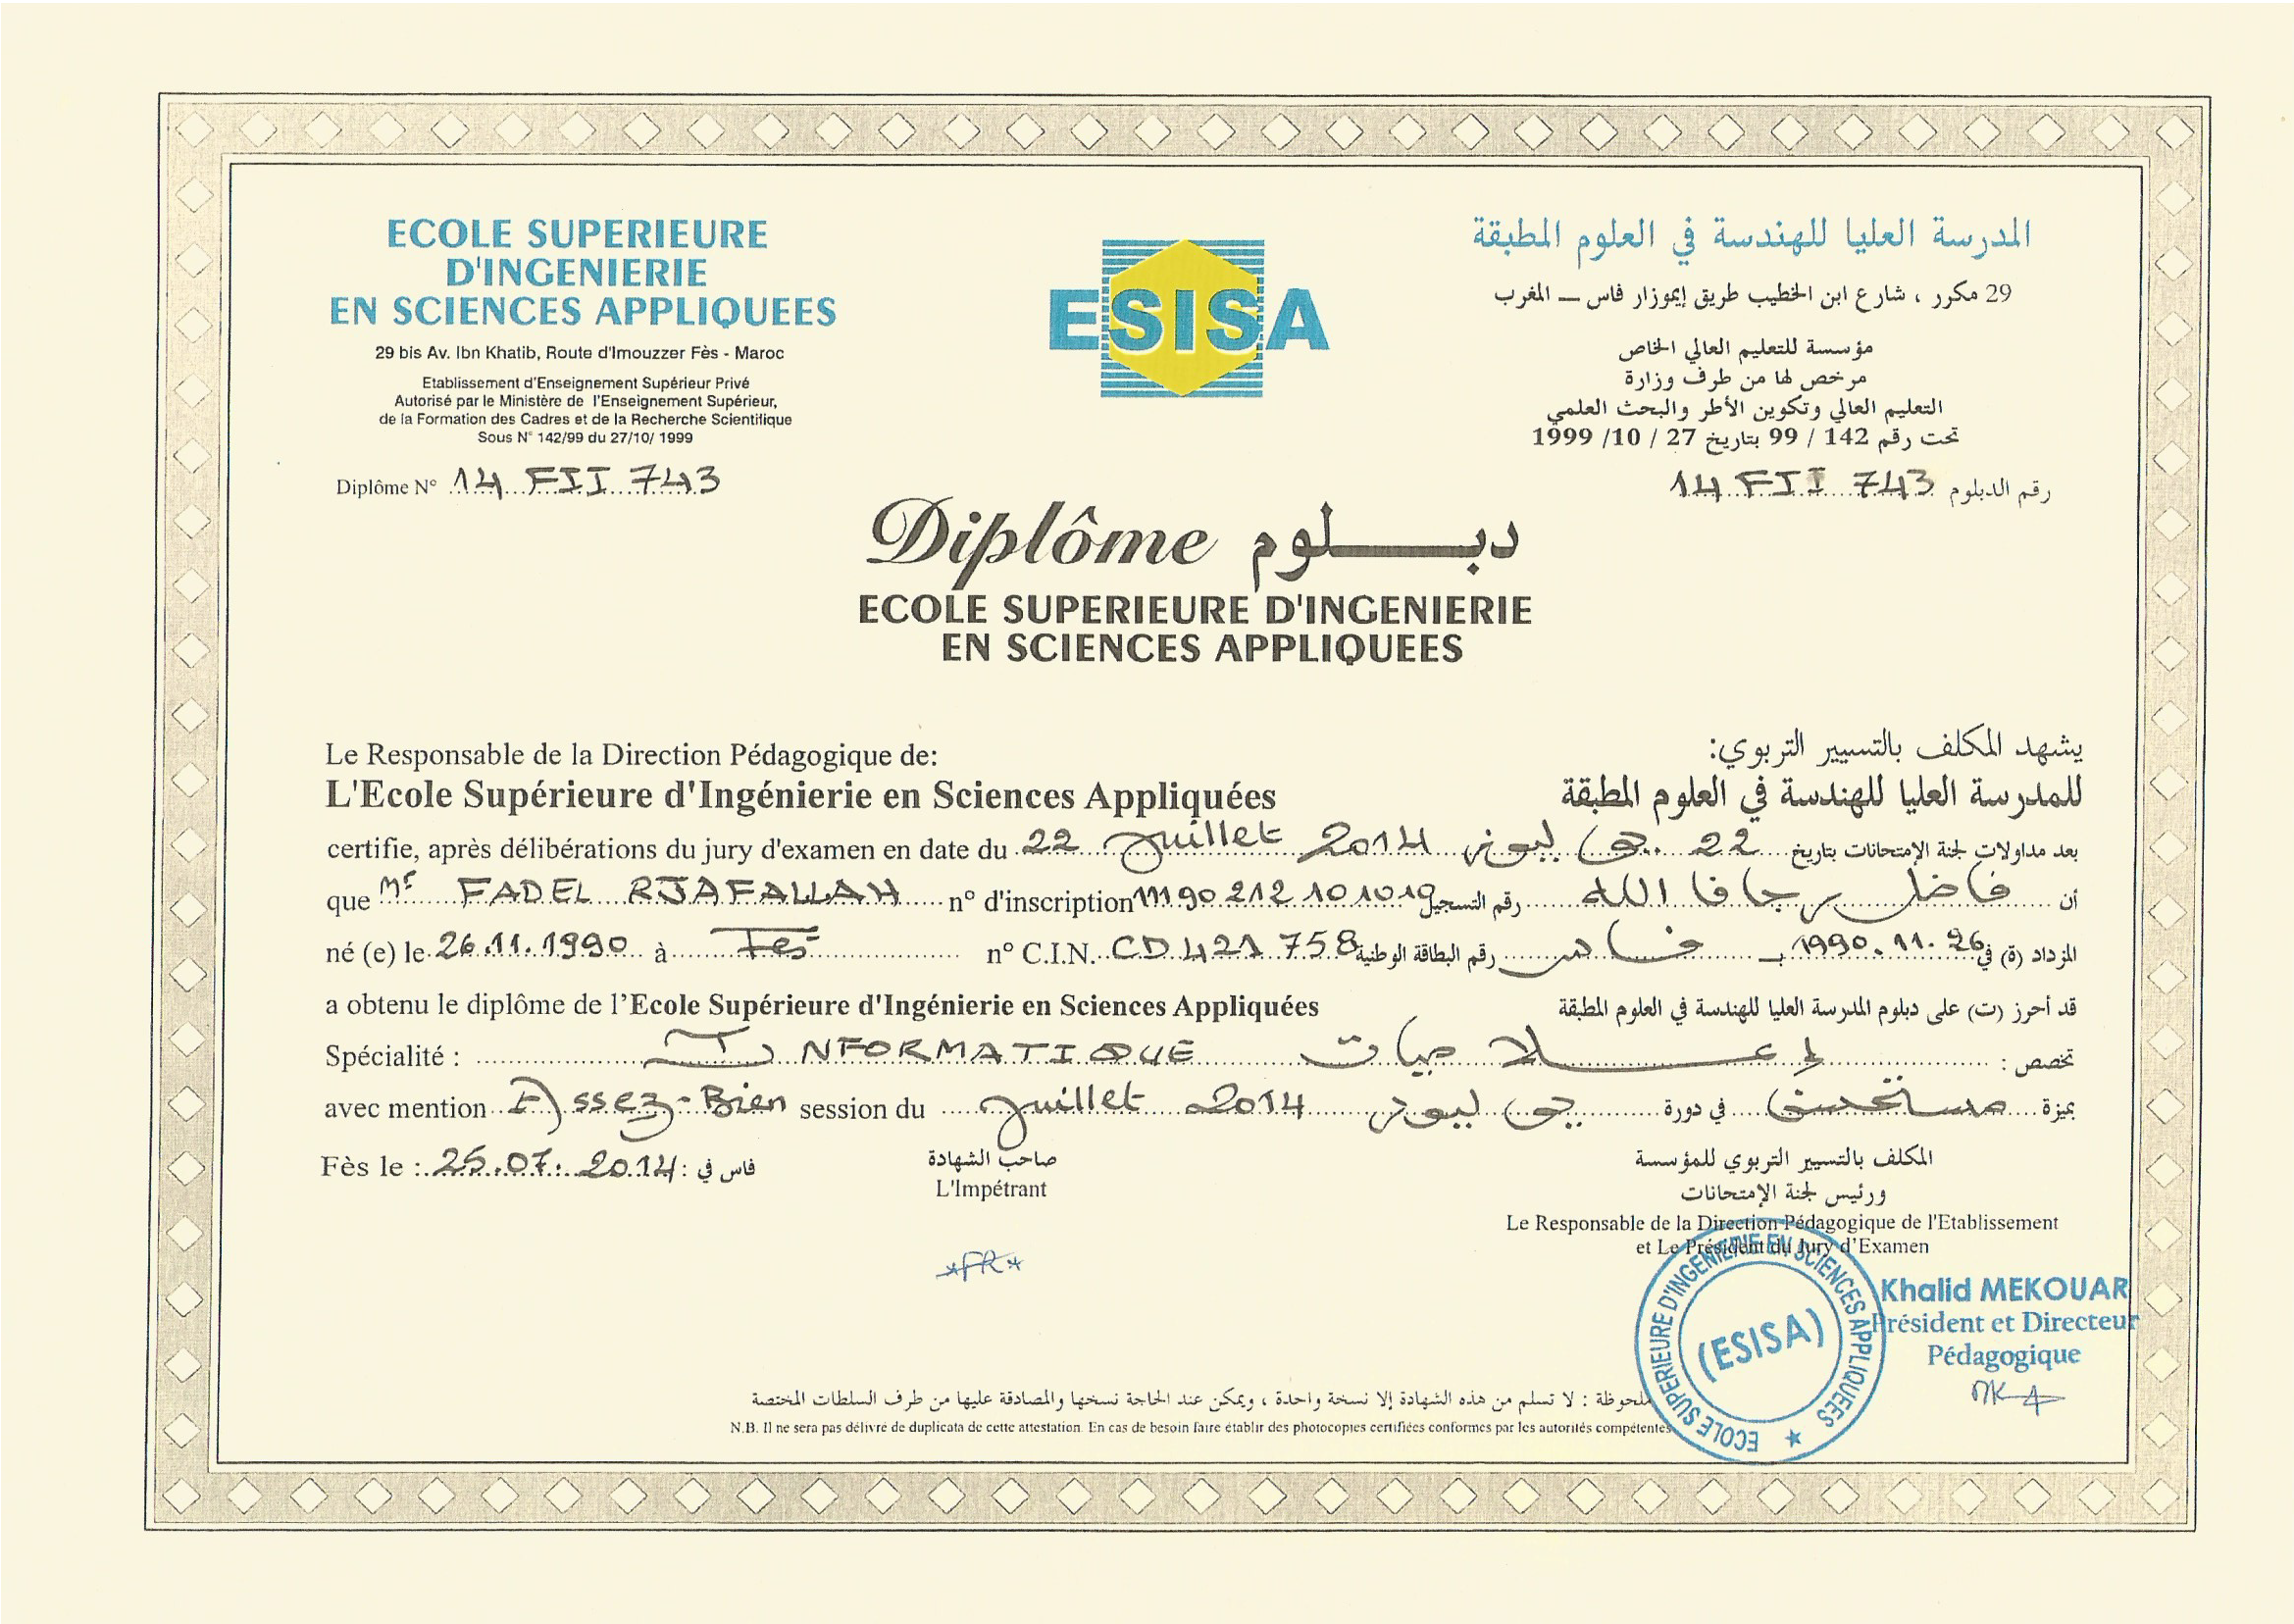 ECOLE SUPERIEURE
D'INGENIERIE
EN SCIENCES APPLIQUEES
29 bis Av. Ibn Khatib, Route d'Imouzzer Fès - Maroc
Etablissement d'Enseignement Supérieur Privé
Autorisé par le Ministère de l'Enseignement Supérieur,
de la Formation des Cadres et de la Recherche Scientifique
Sous N° 142/99 du 27/10/ 1999
Diplôme N° 14 FII 743
ESISA
المدرسة العليا للهندسة في العلوم المطبقة
29 مكرر ، شارع ابن الخطيب طريق إيموزار فاس – المغرب
مؤسسة للتعليم العالي الخاص
مرخص لها من طرف وزارة
التعليم العالي وتكوين الأطر والبحث العلمي
تحت رقم 142 / 99 بتاريخ 27 / 10/ 1999
رقم الدبلوم 14 FII 743
Diplôme دبـلوم
ECOLE SUPERIEURE D'INGENIERIE
EN SCIENCES APPLIQUEES
Le Responsable de la Direction Pédagogique de:
يشهد المكلف بالتسيير التربوي:
L'Ecole Supérieure d'Ingénierie en Sciences Appliquées
للمدرسة العليا للهندسة في العلوم المطبقة
certifie, après délibérations du jury d'examen en date du 22 Juillet 2014
بعد مداولات لجنة الإمتحانات بتاريخ 22 جويليوز
que Mr FADEL RJAFALLAH n° d'inscription 1119021210 1019
أن فاضل رجافا الله رقم التسجيل
né (e) le 26.11.1990 à Fès n° C.I.N. CD 421 758
المزداد (ة) في 26.11.1990 بـ فاس رقم البطاقة الوطنية
a obtenu le diplôme de l'Ecole Supérieure d'Ingénierie en Sciences Appliquées
قد أحرز (ت) على دبلوم المدرسة العليا للهندسة في العلوم المطبقة
Spécialité : INFORMATIQUE
تخصص : إعلاميات
avec mention Assez-Bien session du Juillet 2014
بميزة مستحسن في دورة جويليوز
Fès le : 25.07.2014 فاس في :
صاحب الشهادة
L'Impétrant
*FR*
المكلف بالتسيير التربوي للمؤسسة
ورئيس لجنة الإمتحانات
Le Responsable de la Direction Pédagogique de l'Etablissement
et Le Président du Jury d'Examen
ECOLE SUPERIEURE D'INGENIERIE EN SCIENCES APPLIQUEES
(ESISA)
Khalid MEKOUAR
Président et Directeur
Pédagogique
ملحوظة : لا تسلم من هذه الشهادة إلا نسخة واحدة ، ويمكن عند الحاجة نسخها والمصادقة عليها من طرف السلطات المختصة
N.B. Il ne sera pas délivré de duplicata de cette attestation. En cas de besoin faire établir des photocopies certifiées conformes par les autorités compétentes